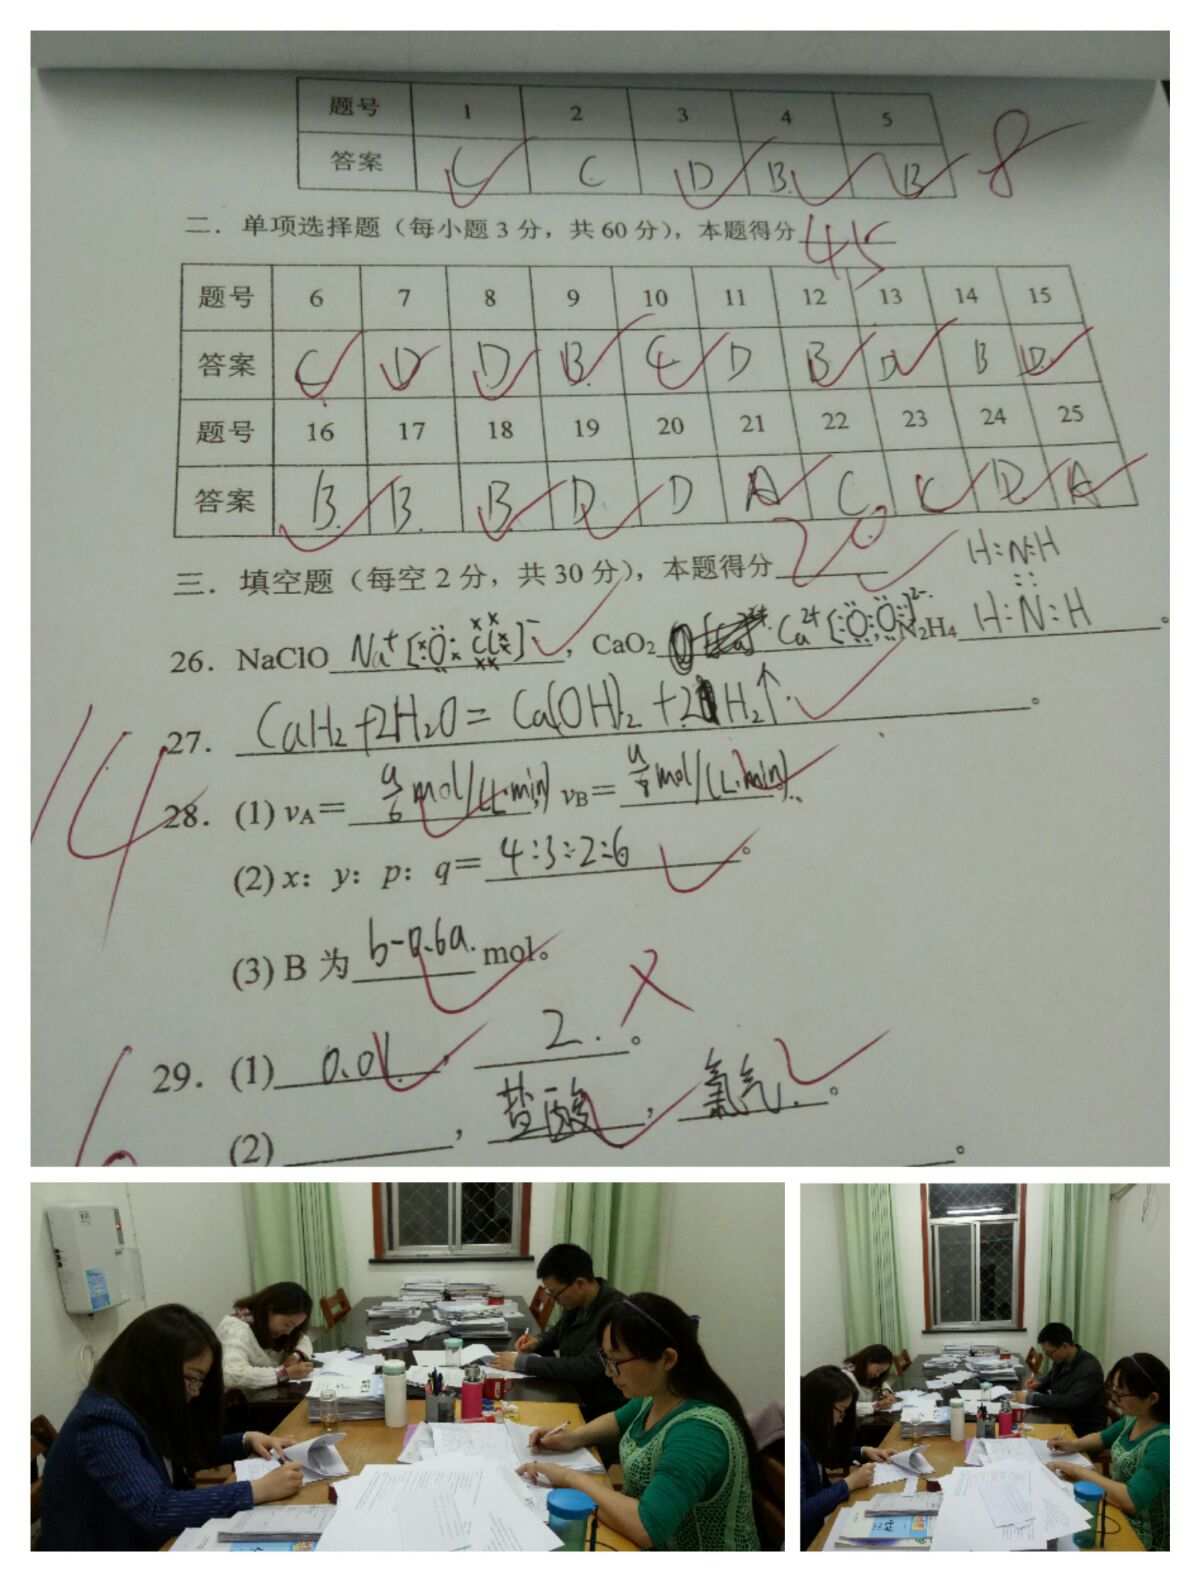 题号 1 2 3 4 5
答案 C C D B. B 8
二．单项选择题（每小题 3 分，共 60 分），本题得分 45
题号 6 7 8 9 10 11 12 13 14 15
答案 C D D B. C D B D B D.
题号 16 17 18 19 20 21 22 23 24 25
答案 B. B. B D D A C C D. A
三．填空题（每空 2 分，共 30 分），本题得分 20
H:N:H
26．NaClO Na⁺[:O:Cl:]⁻，CaO₂ Ca²⁺[:O:O:]²⁻ N₂H₄ H:N:H。
27．CaH₂+2H₂O=Ca(OH)₂+2H₂↑。
14
28．(1) vA＝a/6 mol/(L·min)，vB＝a/8 mol/(L·min)。
(2) x：y：p：q＝4:3:2:6。
(3) B 为 b-0.6a mol。
29．(1) 0.01，2。
(2) ，盐酸，氯气。